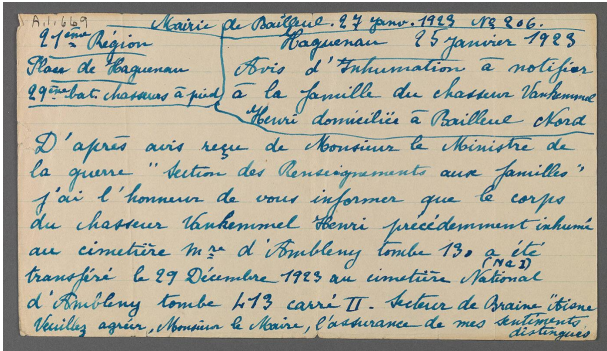 A.1.669
Mairie de Bailleul. 27 janv. 1923 No 206.
21ème Région
Place de Haguenau
29ème bat. chasseurs à pied
Haguenau 25 janvier 1923
Avis d'Inhumation à notifier
à la famille du chasseur Vankemmel
Henri domiciliée à Bailleul Nord
D'après avis reçue de Monsieur le Ministre de
la guerre "Section des Renseignements aux familles"
j'ai l'honneur de vous informer que le corps
du chasseur Vankemmel Henri précédemment inhumé
au cimetière mre d'Ambleny tombe 130 a été
(No I)
transféré le 29 Décembre 1923 au cimetière National
d'Ambleny tombe 413 carré II. Secteur de Braine "Aisne
Veuillez agréer, Monsieur le Maire, l'assurance de mes sentiments
distingués